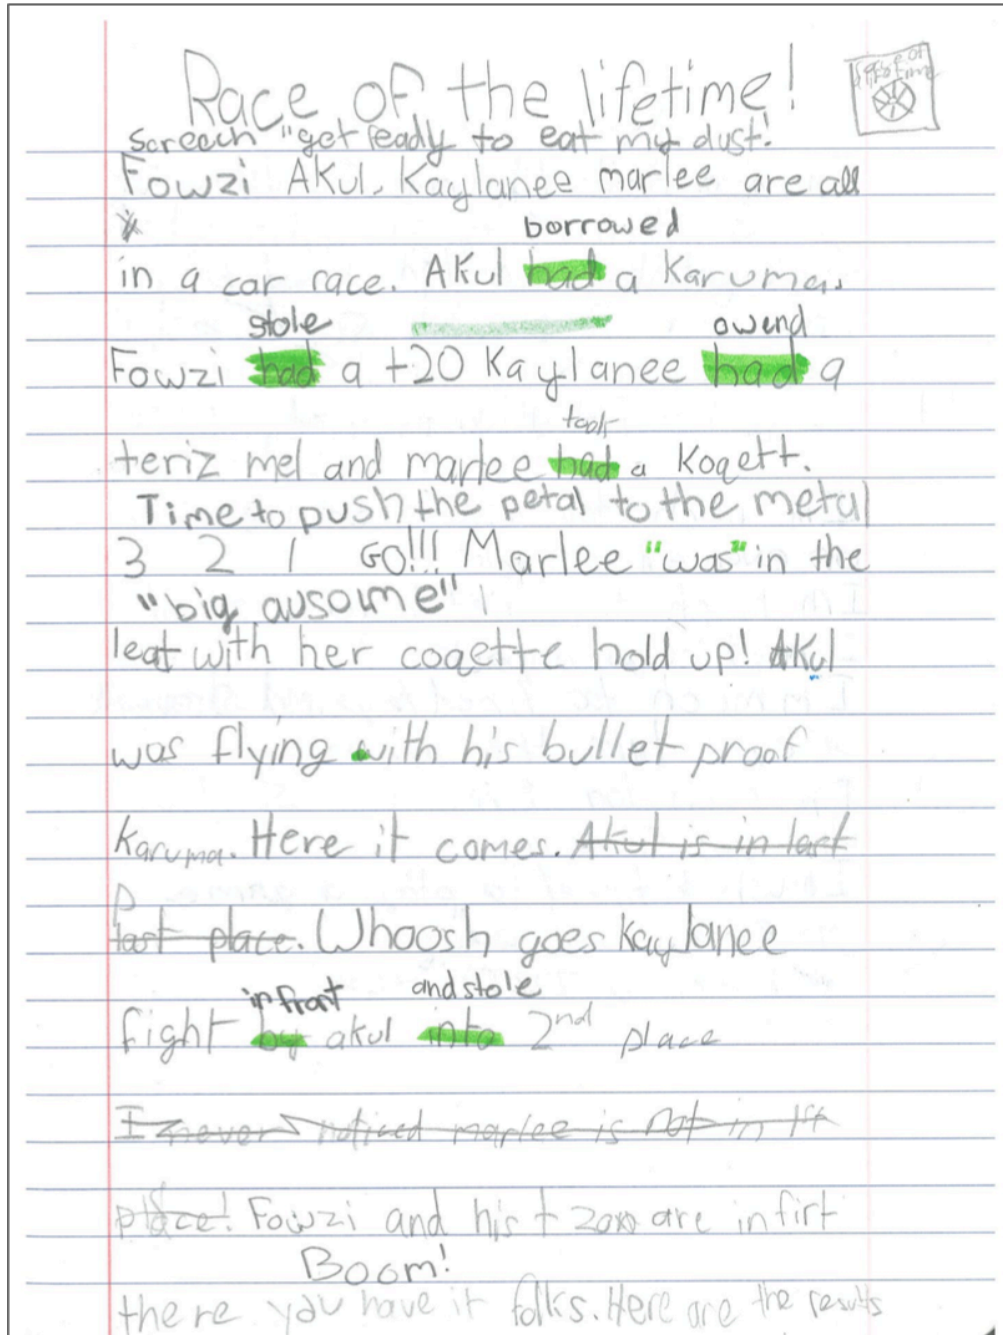 Race of the lifetime!
Screech "get ready to eat my dust!
Fowzi AKul, Kaylanee marlee are all
borrowed
in a car race. AKul had a Karuma.
stole owend
Fowzi had a t20 Kaylanee had a
took
teriz mel and marlee had a Koqett.
Time to push the petal to the metal
3 2 1 GO!!! Marlee "was" in the
"big ausome"
leat with her coqette hold up! AKul
was flying with his bullet proof
Karuma. Here it comes. Akul is in last
last place. Whoosh goes Kaylanee
in front and stole
fight by akul into 2nd place
I never noticed marlee is not in 1st
place! Fowzi and his t 20 are in firt
Boom!
there you have it folks. Here are the results